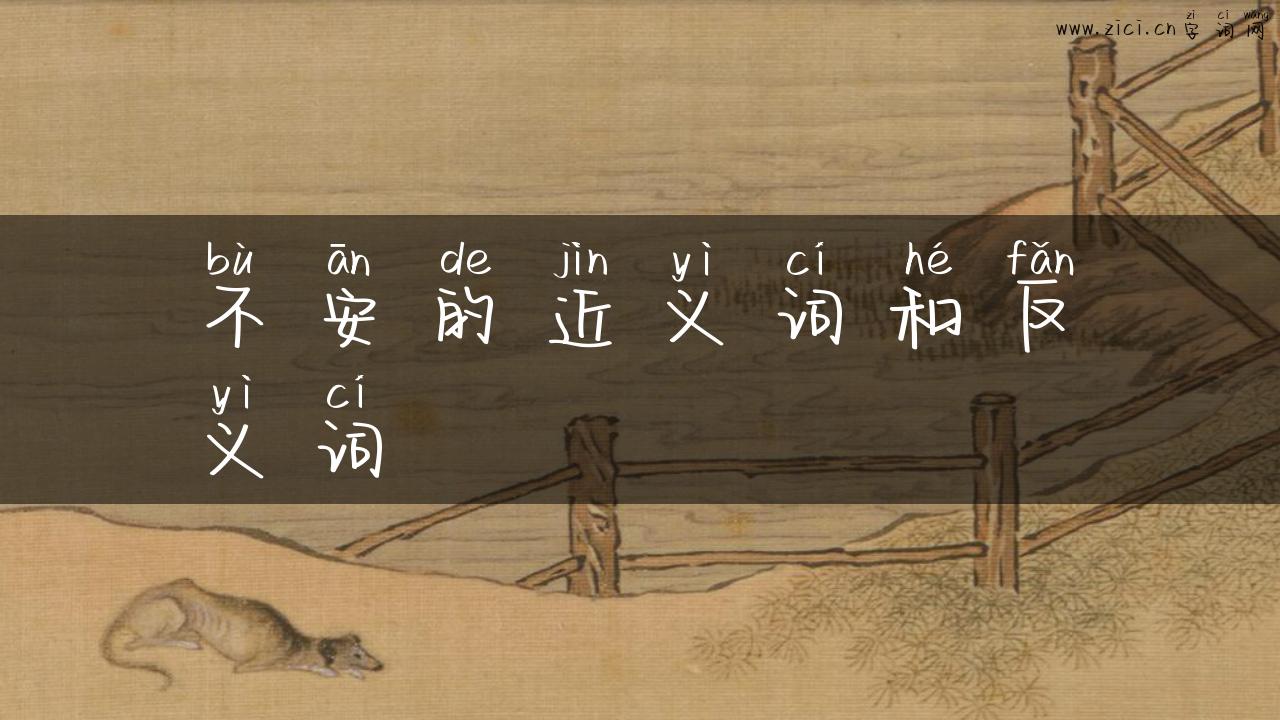 zì cí wǎng
www.zici.cn 字词网
bù ān de jìn yì cí hé fǎn
不安的近义词和反
yì cí
义词